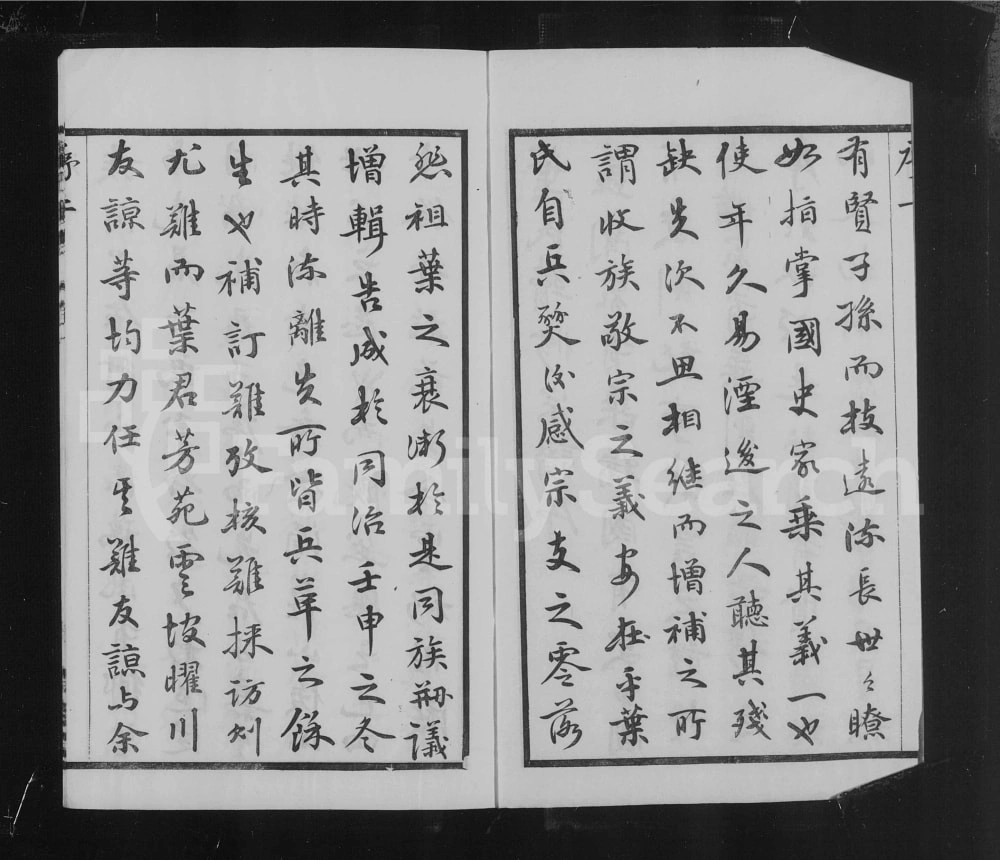 序 一
有賢子孫而枝遠流長世々瞭
如指掌國史家乘其義一也
使年久易湮後之人聽其殘
缺失次不思相继而增補之所
謂收族敬宗之義安在乎葉
氏自兵燹後感宗支之零落
愁祖葉之衰漸於是同族冊議
增輯告成於同治壬申之冬
其時流離失所皆兵革之餘
生也補訂難攷核難採訪刻
尤難而葉君芳苑雲坡曜川
友諒等均力任其難友諒与余
序 二
FamilySearch